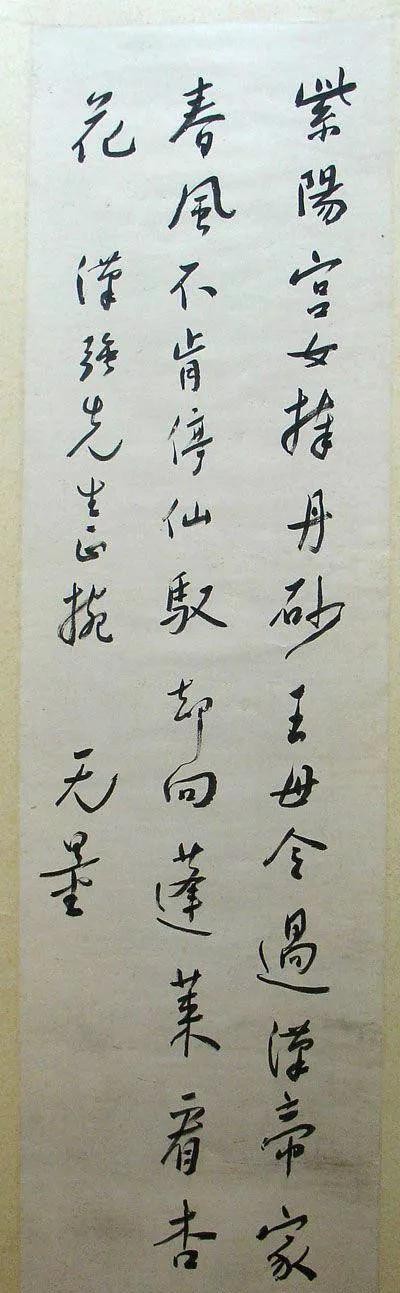 紫陽宮女捧丹砂王母令過漢帝家
春風不肯停仙馭却向蓬莱看杏
花 漢強先生正捥 无量